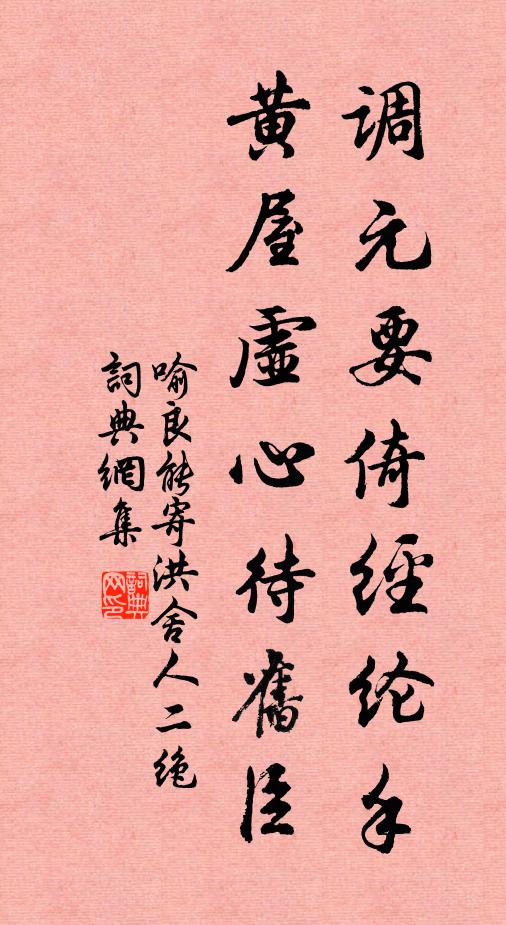 調元要倚經纶手
黄屋虛心待舊臣
喻良能寄洪舍人二绝
詞典網集
詞典网印